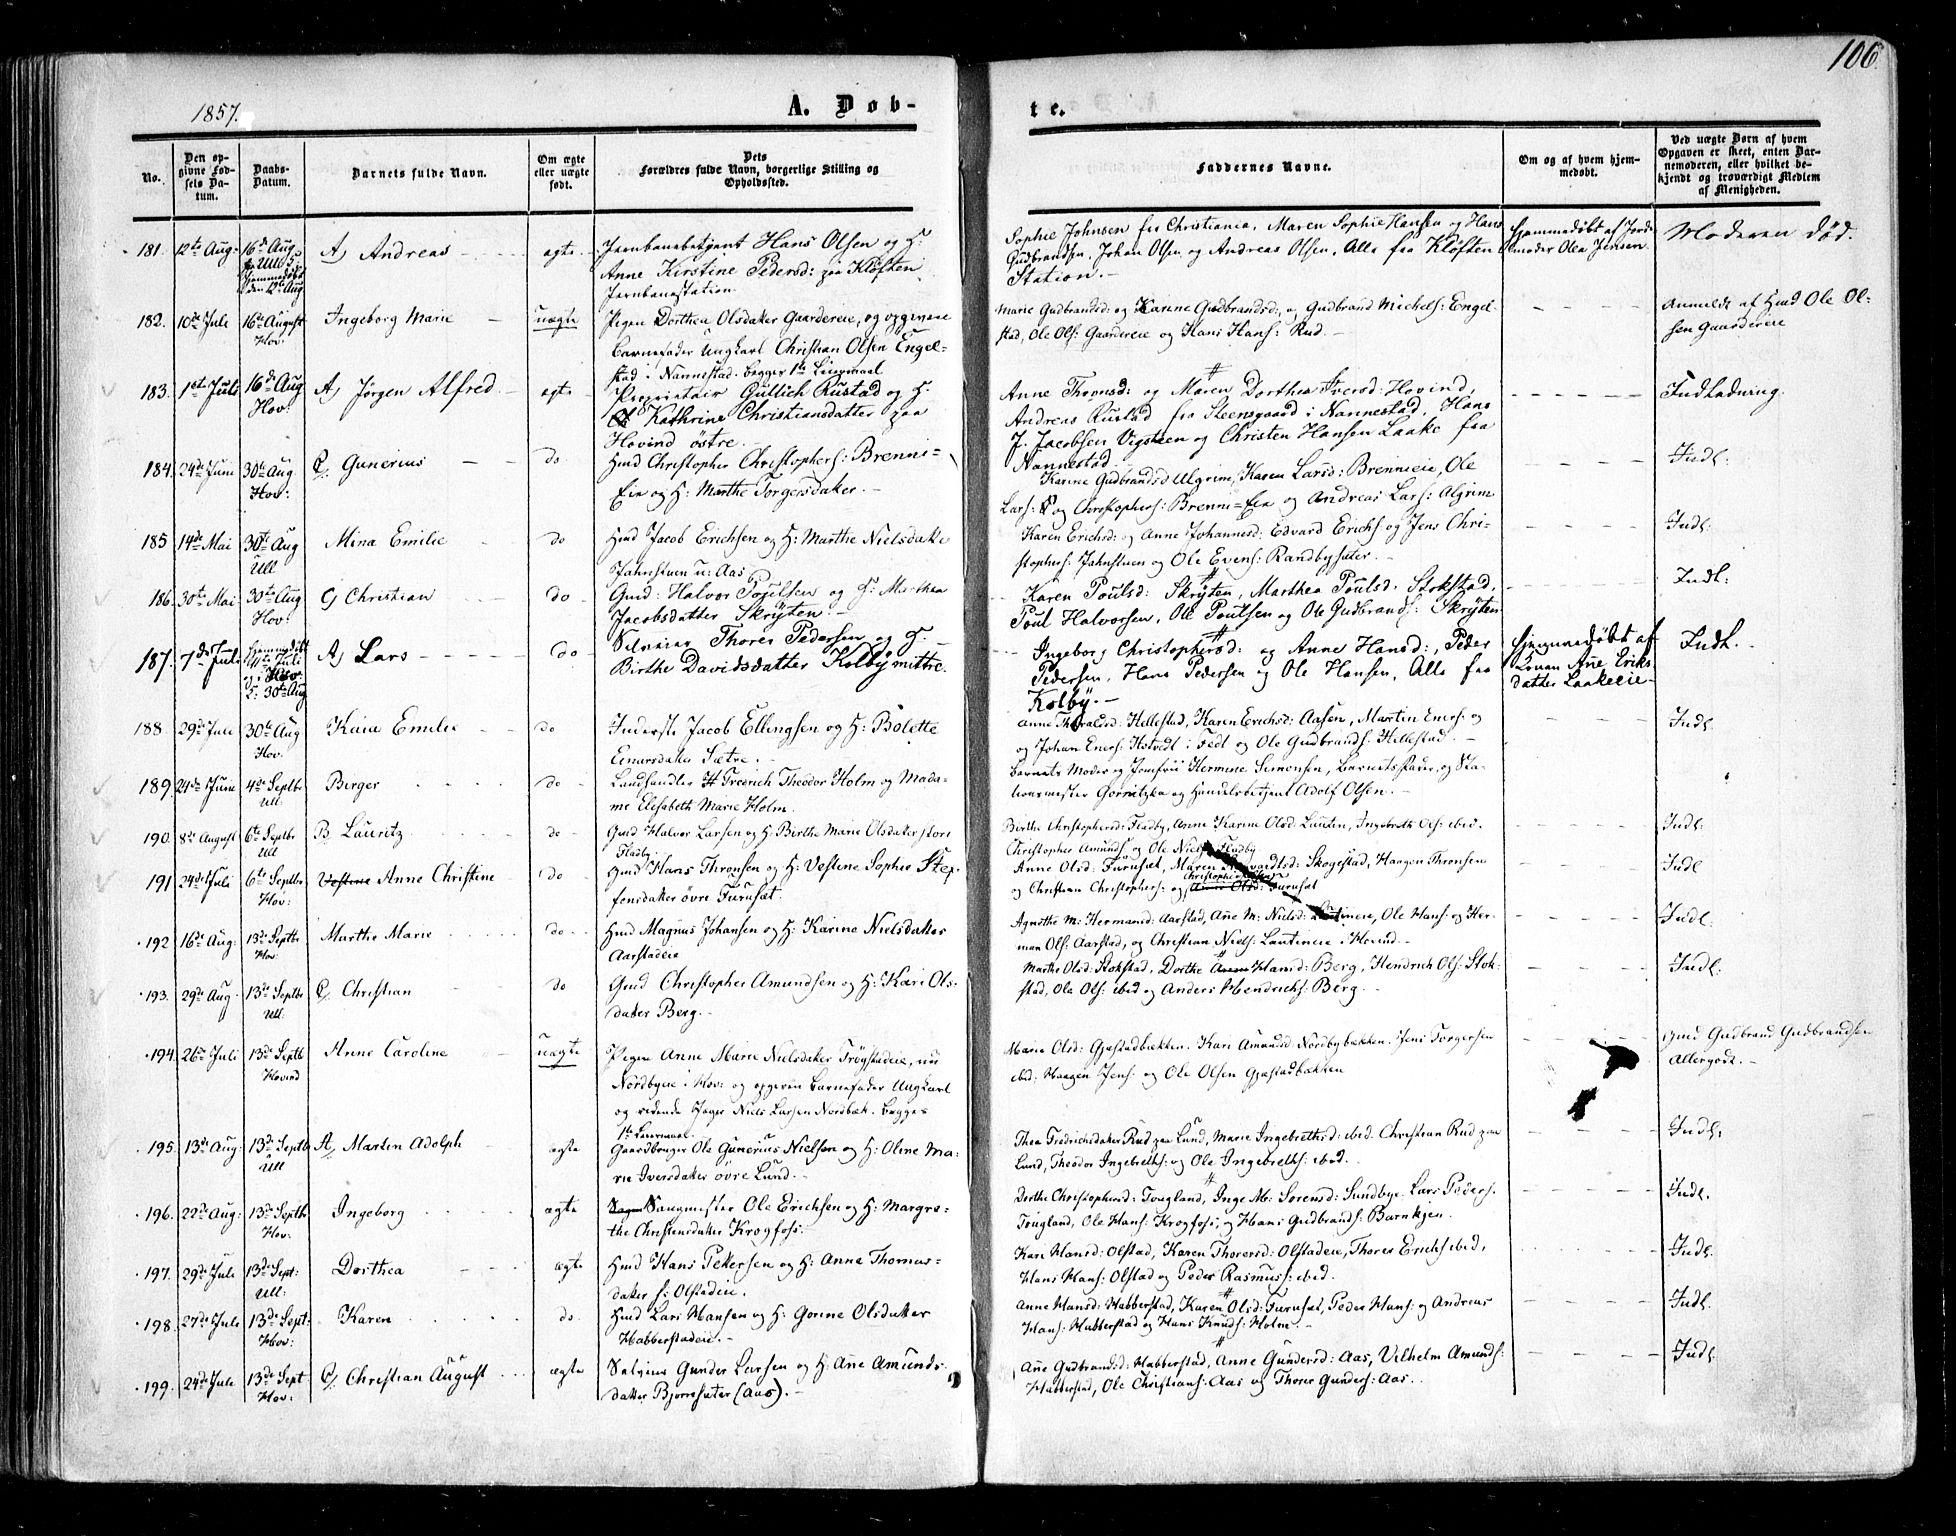 106.
1857.
A. Døb-
te.
No.
Den op-
givne Fød-
sels Da-
tum.
Daabs-
Datum.
Barnets fulde Navn.
Om ægte
eller uægte
født.
Dets
Forældres fulde Navn, borgerlige Stilling og
Opholdssted.
Faddernes Navne.
Om og af hvem hjem-
medøbt.
Ved uægte Børn af hvem
Opgaven er skeet, enten Bar-
nemoderen, eller hvilket be-
kjendt og troværdigt Medlem
af Menigheden.
181. 12te Aug: 16de Aug A) Andreas ægte Jernbanebetjent Hans Olsen og H:
Anne Kirstine Pedersd: paa Kløften
Jernbanestation.
Sophie Johnsen fra Christiania, Maren Sophie Hansen og Hans
Gudbrandsen, Johan Olsen og Andreas Olsen, Alle fra Kløften
Station.
Hjemmedøbt af Jord-
moder Olea Jensen
Moderen død.
182. 10de Juli 16de August Ingeborg Marie uægte Pigen Dorthea Olsdatter Gaardereie, og opgiven
Hov: Barnefader Ungkarl Christian Olsen Engel-
stad i Nannestad. begges 1te Leiermaal
Marie Gudbrandsd: og Karine Gudbrandsd: og Gudbrand Michels: Engel-
stad, Ole Ols: Gaardereie og Hans Hans: Rud.
Anmeldt af Hmd Ole Ol-
sen Gaardereie
183. 1ste Juli 16de Aug A) Jørgen Alfred ægte Proprietair Gullich Rustad og H.
Hov: Kathrine Christiansdatter paa
Hovind østre.
Anne Thorsd: og Maren Dorthea Iversd: Hovind,
Andreas Rustad fra Steensgaard i Nannestad, Hans
J. Jacobsen Vigsteen og Christen Hansen Laake fra
Nannestad
Indladning.
184. 24de Juni 30te Aug C) Gunerius do Hmd Christopher Christophers: Brenni-
Hov: Eie og H: Marthe Torgersdatter.
Karine Gudbrandsd Ulgrim, Karen Larsd: Brennieie, Ole
Lars: og Christophers: Brenni-Eie og Andreas Lars: Algrim
Indl:
185 14de Mai 30te Aug Mina Emilie do Hmd Jacob Erichsen og H: Marthe Nielsdatter
Ull Jahnstuen u: Aas
Karen Erichsd: og Anne Johannesd: Edvard Erichs: og Jens Chri-
stophers: Jahnstuen og Ole Evens: Randbysæter.
Indl:
186. 30te Mai 30te Aug C) Christian do Gmd: Halvor Poulsen og H: Marthea
Hov: Jacobsdatter Skryten.
Karen Poulsd: Skryten, Marthea Poulsd: Stokstad,
Poul Halvorsen, Ole Poulsen og Ole Gudbrands: Skryten
Indl:
187. 7de Juli Hjemmedøbt A) Lars do Selveier Thorer Pedersen og H.
11te Juli Birthe Davidsdatter Kolby mittre.
og i Hov:
d: 30te Aug
Ingeborg Christophersd: og Anne Hansd:, Peder
Pedersen, Hans Pedersen og Ole Hansen, Alle fra
Kolby.
Hjemmedøbt af
Konen Ane Eriks-
datter Laakeeie
Indl.
188 29de Juli 30te Aug Kaia Emilie do Inderste Jacob Ellingsen og H: Bolette
Hov. Einarsdatter Sætre.
Anne Thoralsd: Hellestad, Karen Erichsd: Aasen, Martin Eners: og
og Johan Eners: Hstvedt i Fedt og Ole Gudbrands: Hellestad.
Indl:
189. 24de Juni 4de Septbr Birger do Landhandler H Fredrich Theodor Holm og Mada-
Ull: me Elisabeth Marie Holm.
Barnets Moder og Jomfru Hermine Simonsen, Barnets Fader, og Sta-
tionsmester Gornitzka og Handelsbetjent Adolf Olsen.
190. 8de August 6te Septbr B. Lauritz do Gmd Halvor Larsen og H: Birthe Marie Olsdatter store
Ull Fladby
Birthe Christophersd: Fladby, Anne Karine Olsd: Lauten, Ingebreth Ols: ibid.
Christopher Amunds: og Ole Niels: Fladby
Indl:
191 24de Juli 6te Septbr Vestine Anne Christine do Hmd Hans Thronsen og H: Vestine Sophie Stef-
Hov: fensdatter øvre Furuset.
Anne Olsd: Furuset, Maren Havardtsd: Skogestad, Haagen Thronsen
og Christian Christophers: og Furuset
Indl
192 16de Aug: 13de Septbr Marthe Marie do Hmd Magnus Johansen og H: Karine Nielsdatter
Hov: Aarstadeie
Agnethe M: Hermansd: Aarstad, Ane M: Nielsd: Lautineie, Ole Hans: og Her-
man Ols: Aarstad, og Christian Niels: Lautineie i Hovind.
Indl:
193. 29de Aug 13de Septbr C) Christian do Gmd Christopher Amundsen og H: Kari Ols-
Ull: datter Berg.
Marthe Olsd: Stokstad, Dorthe Hansd: Berg, Hendrich Ols: Stok-
stad, Ole Ols: ibid og Anders Hendrichs: Berg.
Indl:
194. 26de Juli 13de Septb Anne Caroline uægte Pigen Anne Marie Nielsdatter Trøgstadeie, nu
Hovind Nordbyeie i Hov: og opgiven Barnefader Ungkarl
og ridende Jæger Niels Larsen Nordbæk. begges
1te Leiermaal
Marie Olsd: Gjæstadbækken. Kari Amundsd Nordbybækken. Jens Torgersen
ibid: Haagen Jens: og Ole Olsen Gjæstadbækken
Gmd Gudbrand Gudbrandsen
Allergodt.
195. 13de Aug: 13de Septb A) Martin Adolph ægte Gaardbruger Ole Gunerius Nielsen og H: Oline Ma-
Ull rie Iversdatter øvre Lund.
Thea Fredrichsdatter Rud paa Lund, Marie Ingebrethsd: ibid. Christian Rud paa
Lund, Theodor Ingebreths: og Ole Ingebreths: ibid.
Indl:
196. 22de Aug: 13de Septbr Ingeborg ægte Saugmester Ole Erichsen og H: Margre-
Hov: the Christensdatter Krogfoss.
Dorthe Christophersd: Tougland, Inge M: Sørensd: Sundbye. Lars Peders.
Tougland, Ole Hans: Krogfoss, og Hans Gudbrands: Barnkjen.
Indl.
197. 29de Juli 13de Sept: Dorthea ægte Hmd Hans Petersen og H: Anna Thomas-
Ull: datter s: Olstadeie.
Kari Hansd: Olstad, Karen Thorersd: Olstadeie, Thorer Erichs ibid,
Hans Hans: Olstad og Peder Rasmus: ibid.
Indl.
198. 27de Juli 13de Sept: Karen do. Hmd Lars Hansen og H: Gorine Olsdatter
Hov: Habberstadeie.
Anne Hansd: Habberstad, Karen Olsd: Furuset, Peder Hans: og Andreas
Hans: Habberstad og Hans Knuds: Holm.
Indl.
199. 24de Juli 13de Sept C) Christian August ægte Selveier Gunder Larsen og H: Ane Amunds-
Hov: datter Bjørnsæter (Aas).
Ane Gudbrandsd: Habberstad, Anne Gundersd: Aas, Vilhelm Amunds:
Habberstad, Ole Christians: Aas og Thorer Gunders: Aas.
Indl.